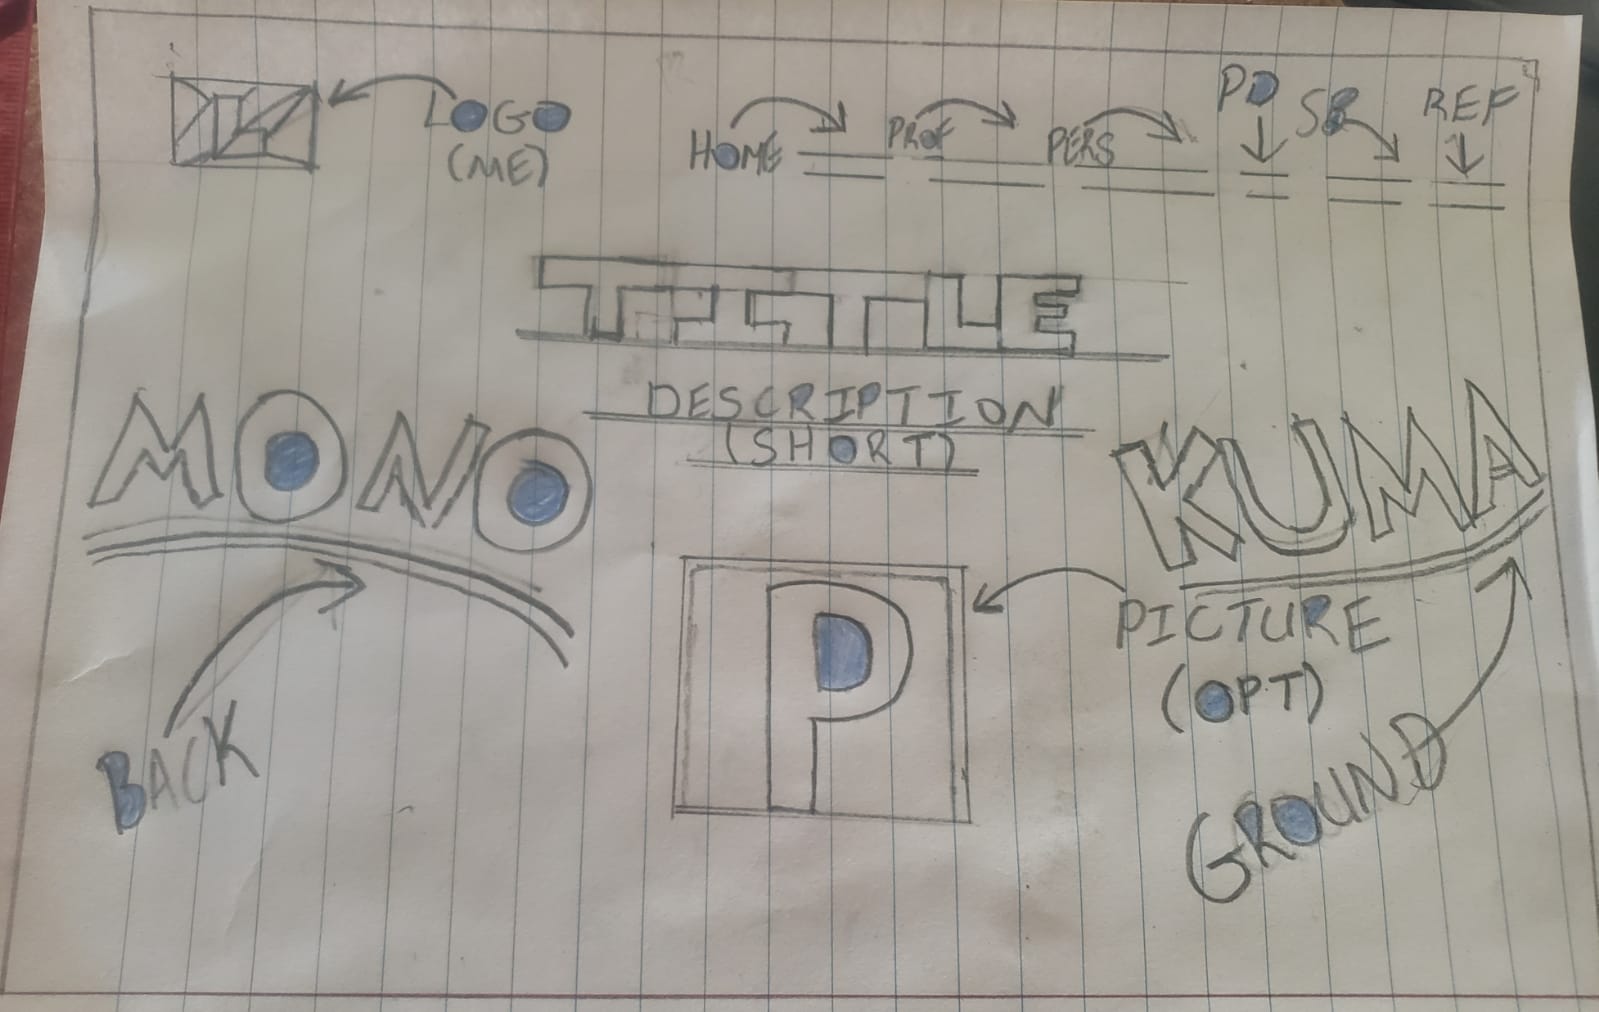 LOGO
(ME)
HOME
PROF
PERS
PD
SB
REF
TITLE
DESCRIPTION
(SHORT)
MONO
KUMA
P
PICTURE
(OPT)
BACK
GROUND